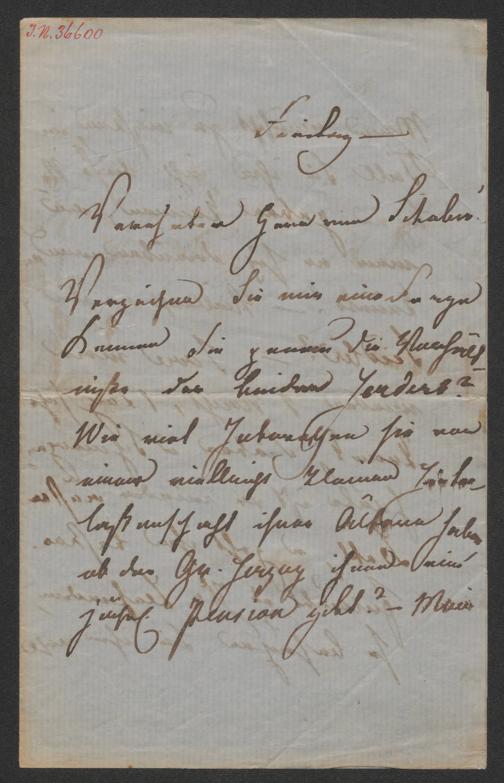 I.N. 36600
Freiburg
Verehrter Herr von Schober!
Verzeihen Sie mir eine Frage
Kennen Sie genau die Verhält
niße der beiden
Wie viel sie von
einer vielleicht kleinen Hinter
laßenschaft ihrer Ältern haben
ob der Gr. Herzog ihnen eine
Pension gibt? – Mein